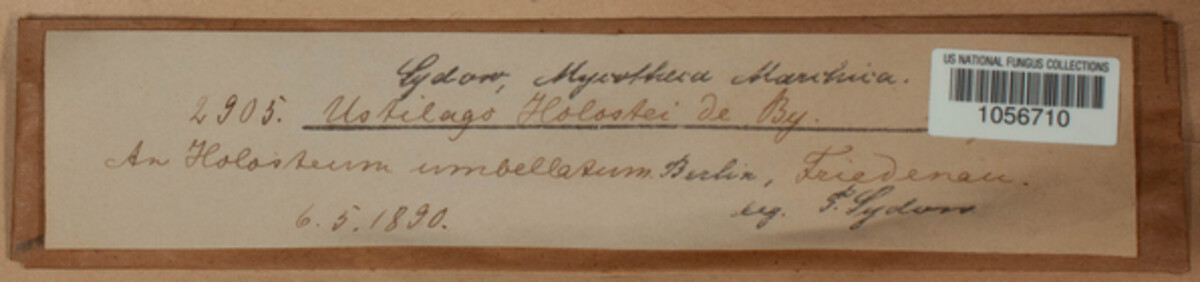 Sydow, Mycotheca Marchica.
US NATIONAL FUNGUS COLLECTIONS
1056710
2905. Ustilago Holostei de By.
An Holosteum umbellatum. Berlin, Friedenau.
6.5.1890.
leg. P. Sydow